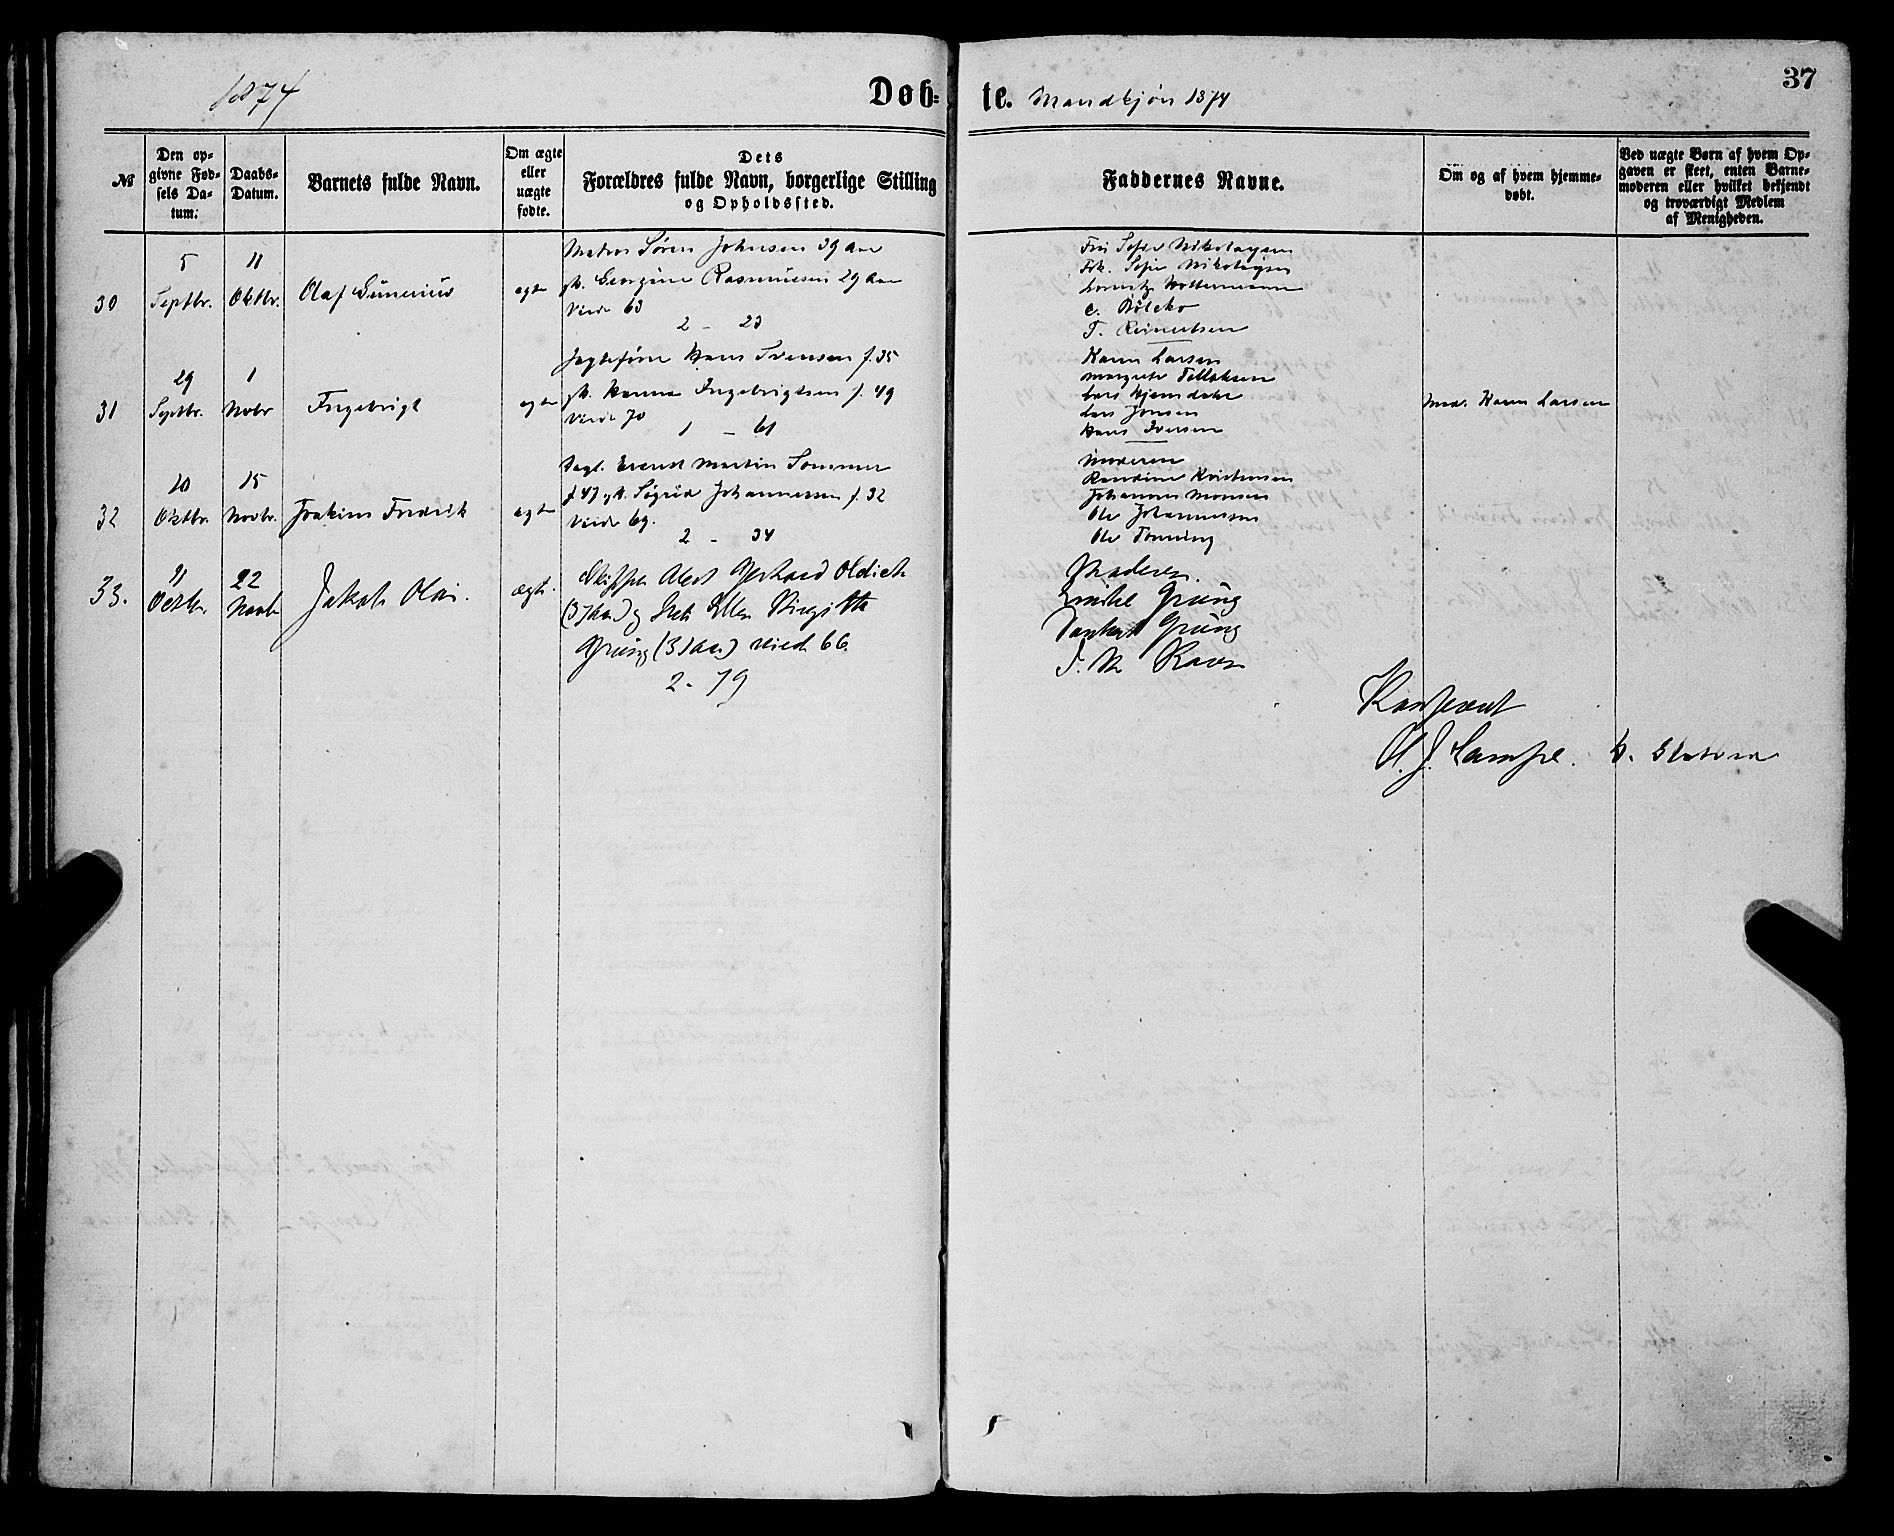 1874
Døb-
te.
Mandkjøn 1874
37
№
Den op-
givne Fød-
sels Da-
tum.
Daabs-
Datum.
Barnets fulde Navn.
Om ægte
eller
uægte
fødte.
Dets
Forældres fulde Navn, borgerlige Stilling
og Opholdssted.
Faddernes Navne.
Om og af hvem hjemme-
døbt.
Ved uægte Børn af hvem Op-
gaven er skeet, enten Barne-
moderen eller hvilket bekjendt
og troværdigt Medlem
af Menigheden.
30
5
Septbr.
11
Oktbr.
Olaf Gunerius
egte
Matros Søren Johnsen 39 Aar
Georgine Rasmussen 29 Aar
Viede 63
2 - 23
Sofie Nikolaysen
Frk. Sofie Nikolaysen
Woltermann
T. Reinertsen
31
29
Septbr.
1
Novbr
Ingebrigt
egte
Jagtefører Hans Ivensen f. 35
Hanna Ingebrigtsen f. 49
Viede 70
1 - 61
Karen Larsen
Margrete Tollaksen
Lars Hjemdahl
Lars Jonsen
Hans Iversen
Mad. Karen Larsen
32
10
Oktbr.
15
Novbr.
Joakim Fredrik
egte
Dagl. Evenst Martin Sommer
f 47 Sigrid Johannessen f. 32
Viede 69.
2 - 34
Moderen
Randine Kristensen
Johannes Monsen
Ole Johannessen
Ole Tonning
33.
11
Octbr.
22
Novbr
Jakob Olai.
ægte.
Skipper Abert Gerhard Oldich
(37 Aar) og Ellen Birgitte
Grung (31 Aar) viede 66.
2 - 79
Moderen.
Emilie Grung
Dankert Grung
Ravn
Konfereret
O. J. Lampe. b. Slotsm